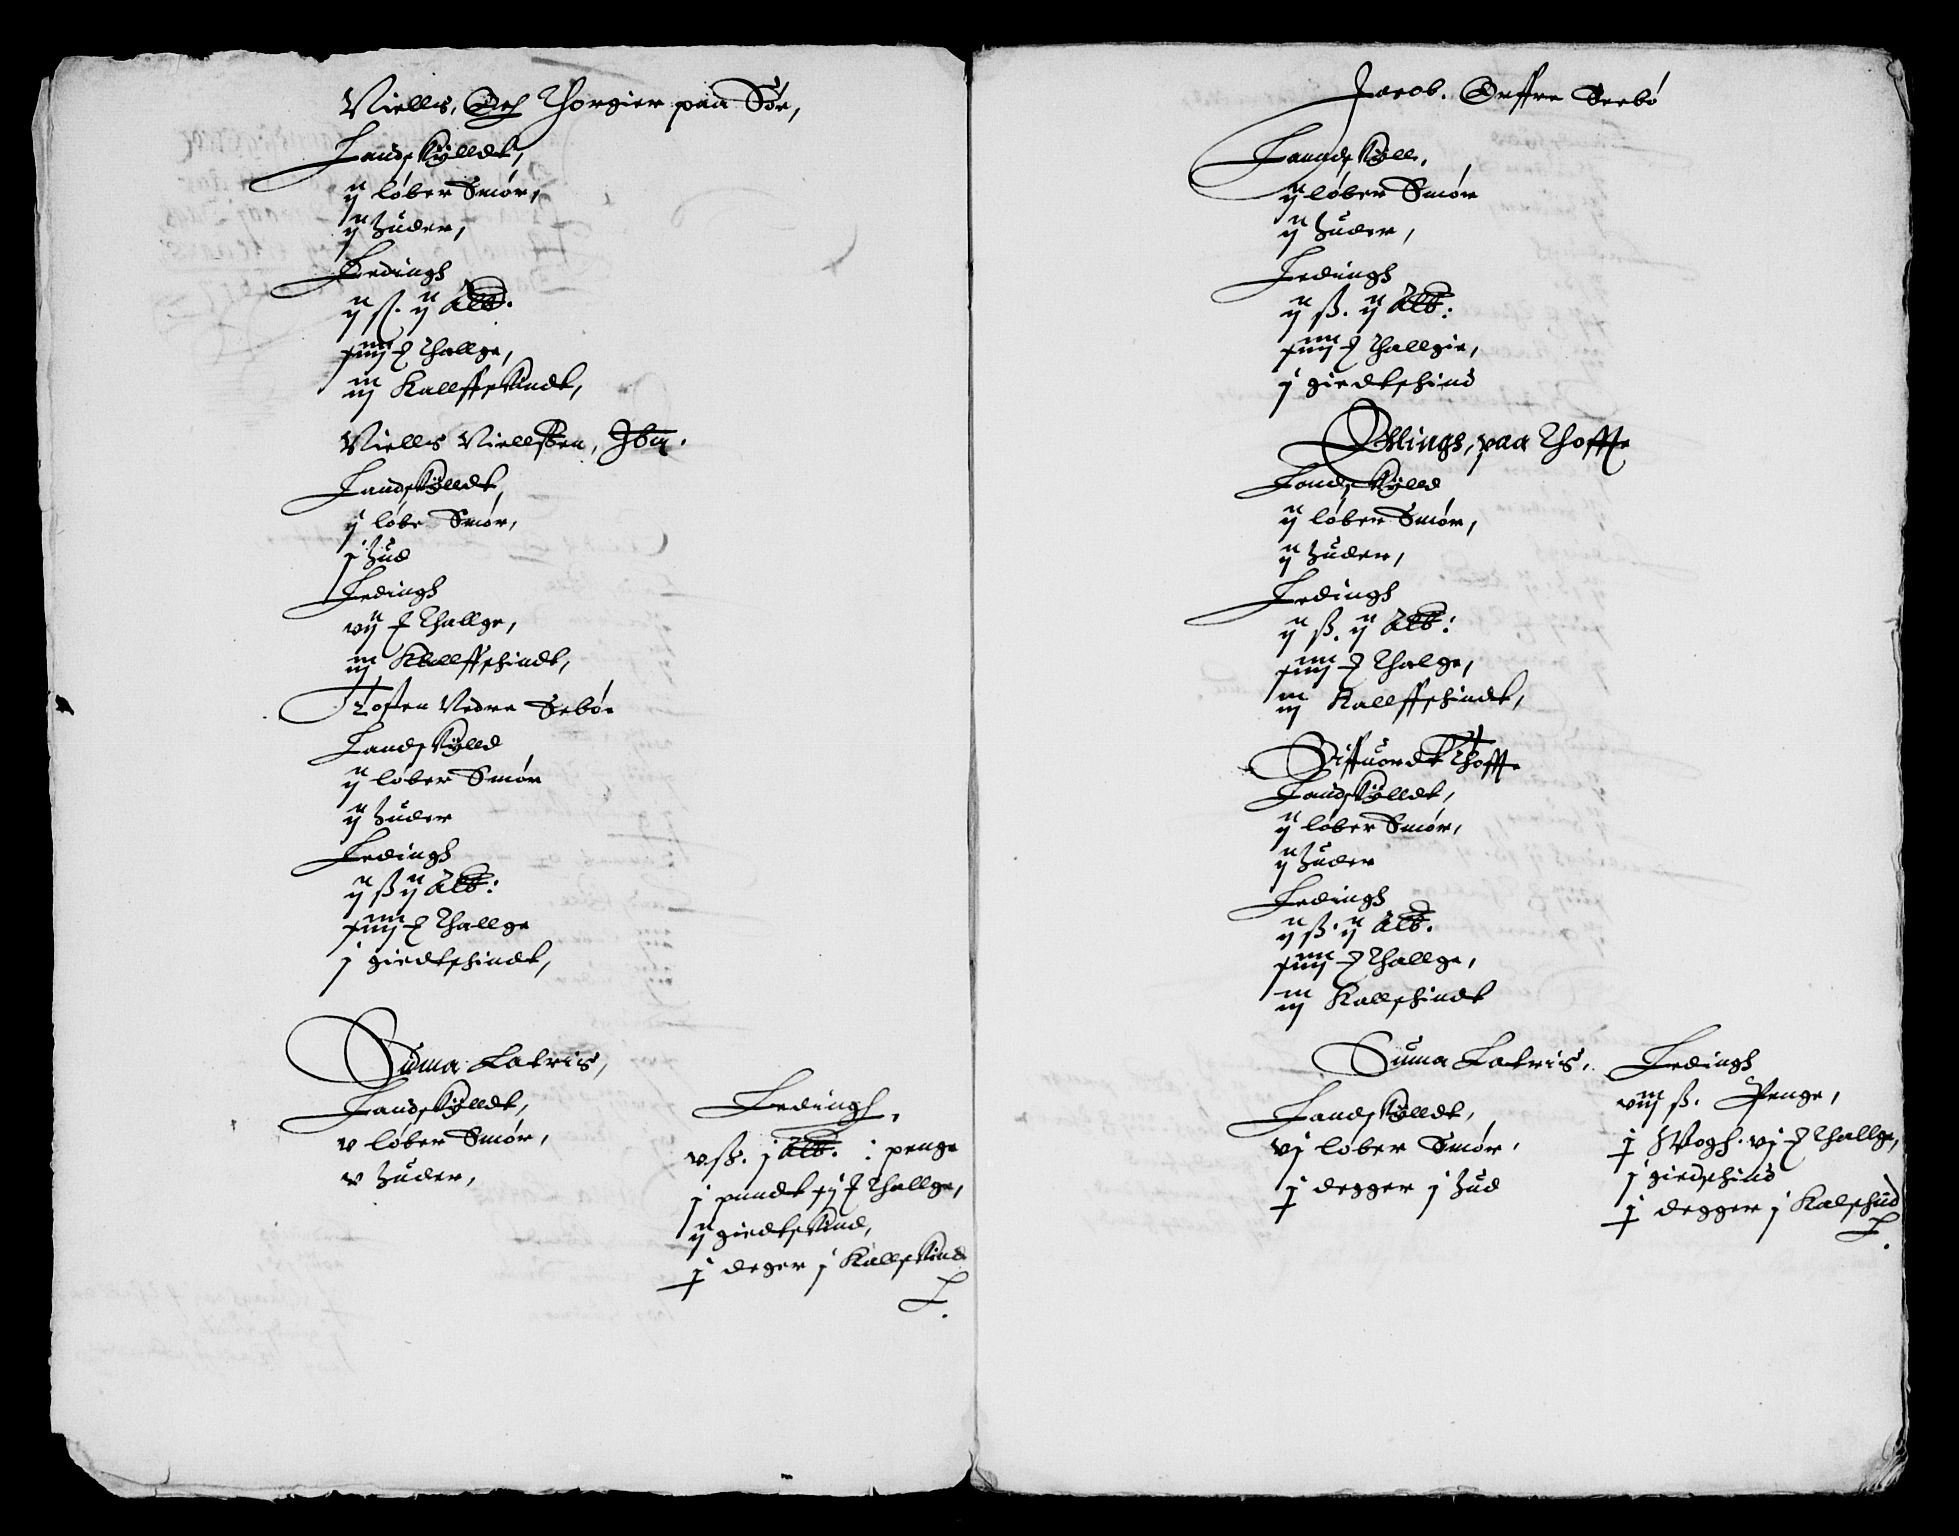 Niells, Och Thorgier paa Bør,
Landskylldt,
ij løber Smør,
ij huder,
Ledingh
ij ß. ij alb.
xiiij ℔ Thallge,
iij Kallffskindt,
Niells Niellssen, Ibid.
Landskylldt,
ij løbe Smør,
j hud
Ledingh
vij ℔ Thallge,
iij Kallffschindt,
Toften Nedre Sebø.
Landskylld
ij løber Smør
ij huder
Ledingh
ij ß ij alb:
xiiij ℔ Thallge
j giedtschindt,
Suma Latris,
Landskylldt,
v løber Smør,
v huder,
Ledingh,
v ß. j alb. : penge
j pundt xj ℔ Thallge,
ij giedtskind,
j deger j Kallskind
Jacob. Øffre Seebø
Lanndskyll,
ij løber Smør
ij huder,
Ledingh
ij ß. ij alb:
xiiij ℔ Thallgie,
j giedtschind
Ellings, paa Thoffte
Landskylld
ij løber Smør,
ij huder,
Ledingh
ij ß. ij alb:
xiiij ℔ Thalge,
iij Kallffschindt,
Thoffte
Landskylldt,
ij løber Smør,
ij huder
Ledingh
ij ß. ij alb.
xiiij ℔ Thallge,
iij Kallschindt
Suma Latris,
Landskylldt,
vj løber Smør,
j degger j hud
Ledingh
viij ß. Penge,
j Wogh. vj ℔ Thallge,
j giedschind
j degger j Kalschind